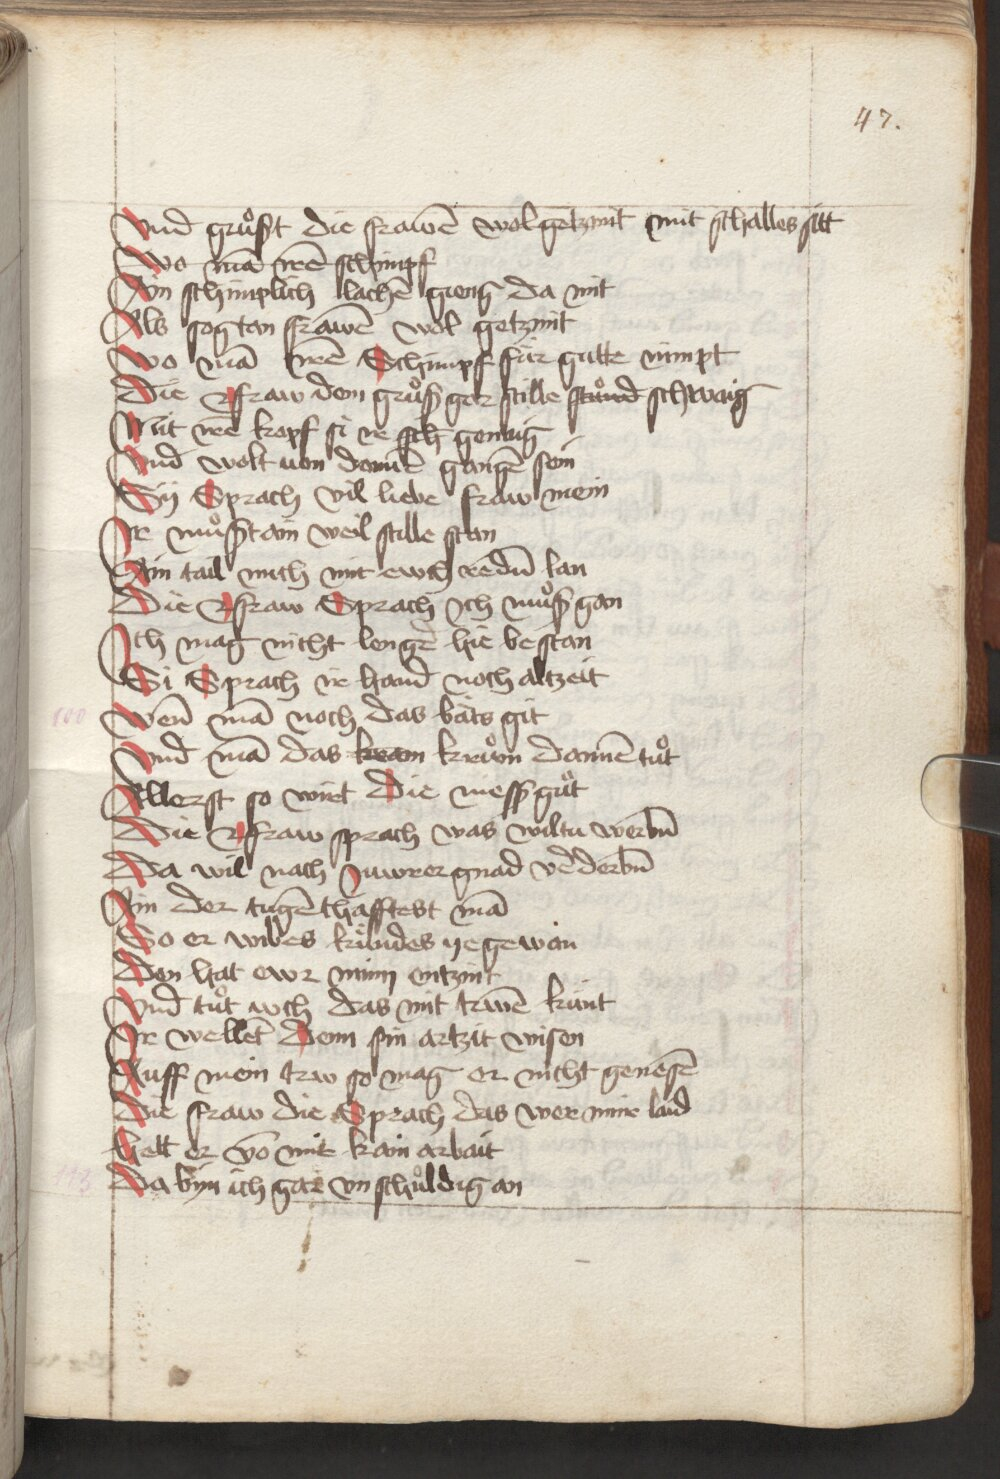 47.
Vnd grůst die frawē wolgetzmt mit schalles sitt
Wo mā irē schimpf
Ain schimplich lachē gieng da mit
Als sogtan frawē wol getzmt
Wo mā irē Schimpf für gutte nimpt
Die fraw dem grůß gar stille schwaig
Mit irē kopf si ir genaig
Vnd wolt uon dannē gangē sein
Sy Sprach vil liebe fraw mein
Ir můst ain weil stille stan
Ain tail mich mit ewch redn̄ lan
Die fraw Sprach ych můß gan
Ich mag nicht lengē hie bestan
Si Sprach ir hand noch altzeit
100 Wen̄ mā noch das bäts git
Vnd mā das kram kräm dannē tůt
Allerst so wirt Die mess gůt
Die fraw sprach was wiltu werbn̄
Da wil nach Juwrer gnad vdderbn̄
Ain der tugēthafftest mā
So er wibes kindes ye gewan
Den hat ewr minn entzint
Vnd tůt uch das mit trwē kunt
Ir wellet Denn sin artzit wisen
Auff mein trw so mag er nicht genesē
Die fraw die Sprach das wer mir laid
Hett er vō mir kain arbait
Da byn ich gar vnschuldig an